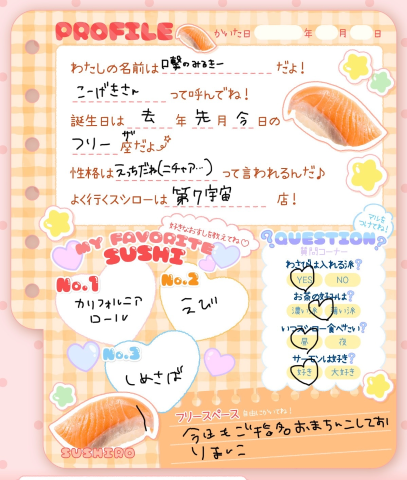 PROFILE かいた日 年 月 日
わたしの名前は口撃のみるきー だよ!
こーげきさん って呼んでね!
誕生日は 去 年 先 月 今 日の
フリーザ座だよ
性格はえっちだね(ニチャア…) って言われるんだ♪
よく行くスシローは 第7宇宙 店!
好きなおすし教えてね
MY FAVORITE SUSHI
No.1
カリフォルニア
ロール
No.2
えび
No.3
しめさば
マルをつけてね!
?QUESTION?
質問コーナー
わさびは入れる派?
YES NO
お茶の好みは?
濃い派 薄い派
いつスシロー食べたい?
昼 夜
サーモンは好き?
好き 大好き
フリースペース 自由にかいてね!
SUSHIRO